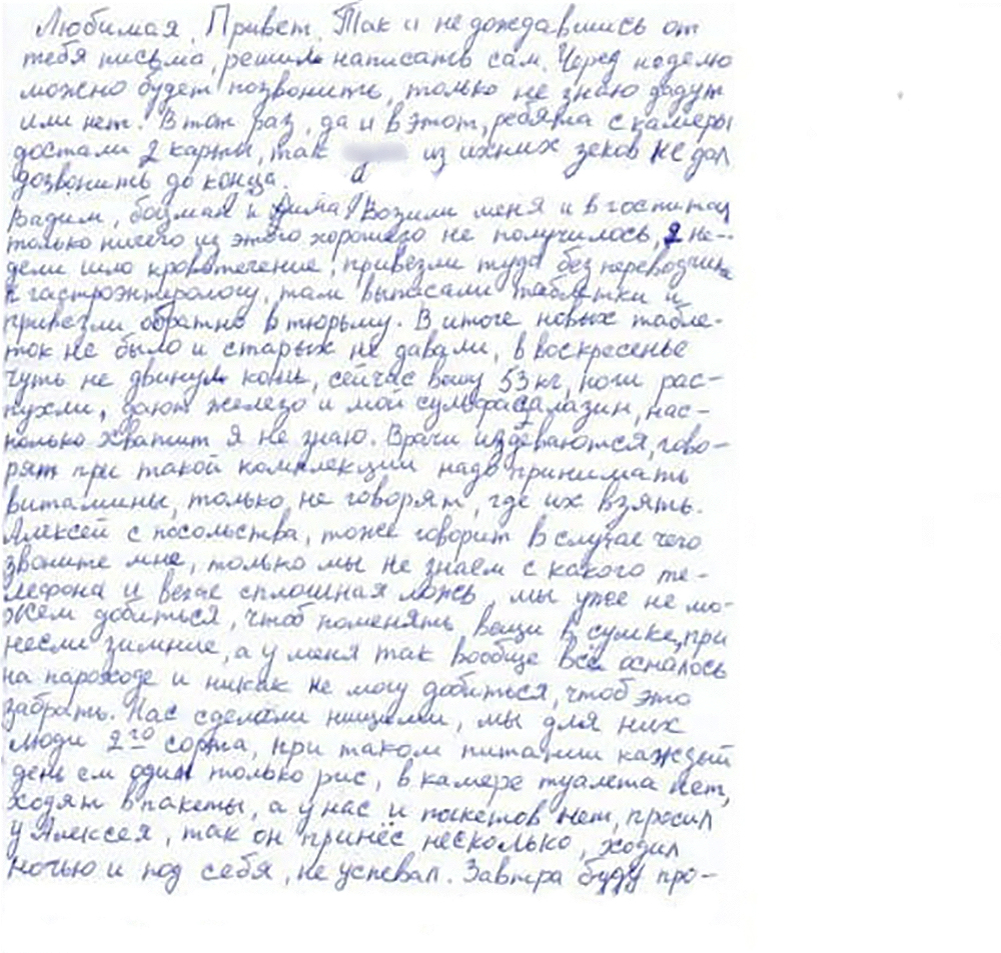 Любимая, Привет. Так и не дождавшись от
тебя письма, решил написать сам. Через неделю
можно будет позвонить, только не знаю дадут
или нет. В тот раз, да и в этот, ребята с камеры
достали 2 карты, так из ихних зеков не дал
дозвонить до конца.
Вадим, боцман и Дима. Возили меня и в госпиталь
только ничего из этого хорошего не получилось, 2 не-
дели шло кровотечение, привезли туда без переводчика
к гастроэнтерологу, там выписали таблетки и
привезли обратно в тюрьму. В итоге новых табле-
ток не было и старых не давали, в воскресенье
чуть не двинул кони, сейчас вешу 53 кг, ноги рас-
пухли, дают железо и мой сульфасалазин, нас-
колько хватит я не знаю. Врачи издеваются, гово-
рят при такой комплекции надо принимать
витамины, только не говорят, где их взять.
Алексей с посольства, тоже говорит в случае чего
звоните мне, только мы не знаем с какого те-
лефона и везде сплошная ложь, мы уже не мо-
жем добиться, чтоб поменять вещи в сумке, при
несли зимние, а у меня так вообще всё осталось
на пароходе и никак не могу добиться, чтоб это
забрать. Нас сделали нищими, мы для них
люди 2го сорта, при таком питании каждый
день ем один только рис, в камере туалета нет,
ходят в пакеты, а у нас и пакетов нет, просил
у Алексея, так он принёс несколько, ходил
ночью и под себя, не успевал. Завтра буду про-